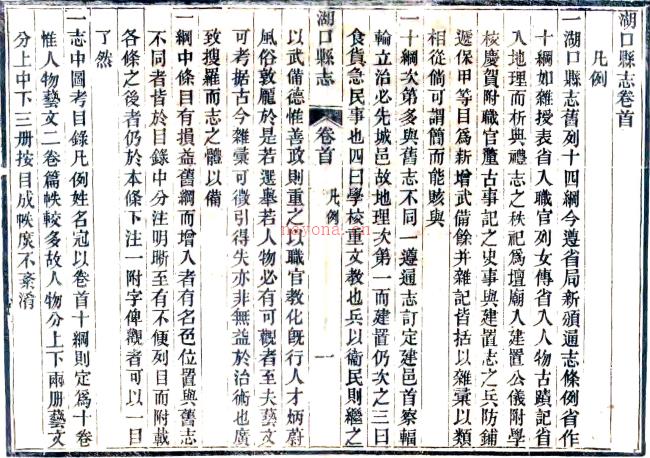 湖口縣志卷首
凡例
一湖口縣志舊列十四綱今遵省局新頒通志條例省作
十綱如雜授表省入職官列女傳省入人物古蹟記省
入地理而析典禮志之秩祀爲壇廟入建置公儀附學
校慶賀附職官董古事記之史事與建置志之兵防鋪
遞保甲等目爲新增武備餘并雜記皆括以雜彙以類
相從倘可謂簡而能賅與
一十綱次第多與舊志不同一遵通志訂定建邑首察輻
輪立治必先城邑故地理次第一而建置仍次之三曰
食貨急民事也四曰學校重文教也兵以衛民則繼之
湖口縣志
卷首
凡例
一
以武備德惟善政則重之以職官教化旣行人才炳蔚
風俗敦龎於是若選舉若人物必有可觀者至夫藝文
可考据古今雜彙可徵引得失亦非無益於治術也廣
致搜羅而志之體以備
一綱中條目有損益舊綱而增入者有名色位置與舊志
不同者皆於目錄中分注明晰至有不便列目而附載
各條之後者仍於本條下注一附字俾觀者可以一目
了然
一志中圖考目錄凡例姓名冠以卷首十綱則定爲十卷
惟人物藝文二卷篇帙較多故人物分上下兩册藝文
分上中下三册按目成帙庶不紊淆
nayona.cn